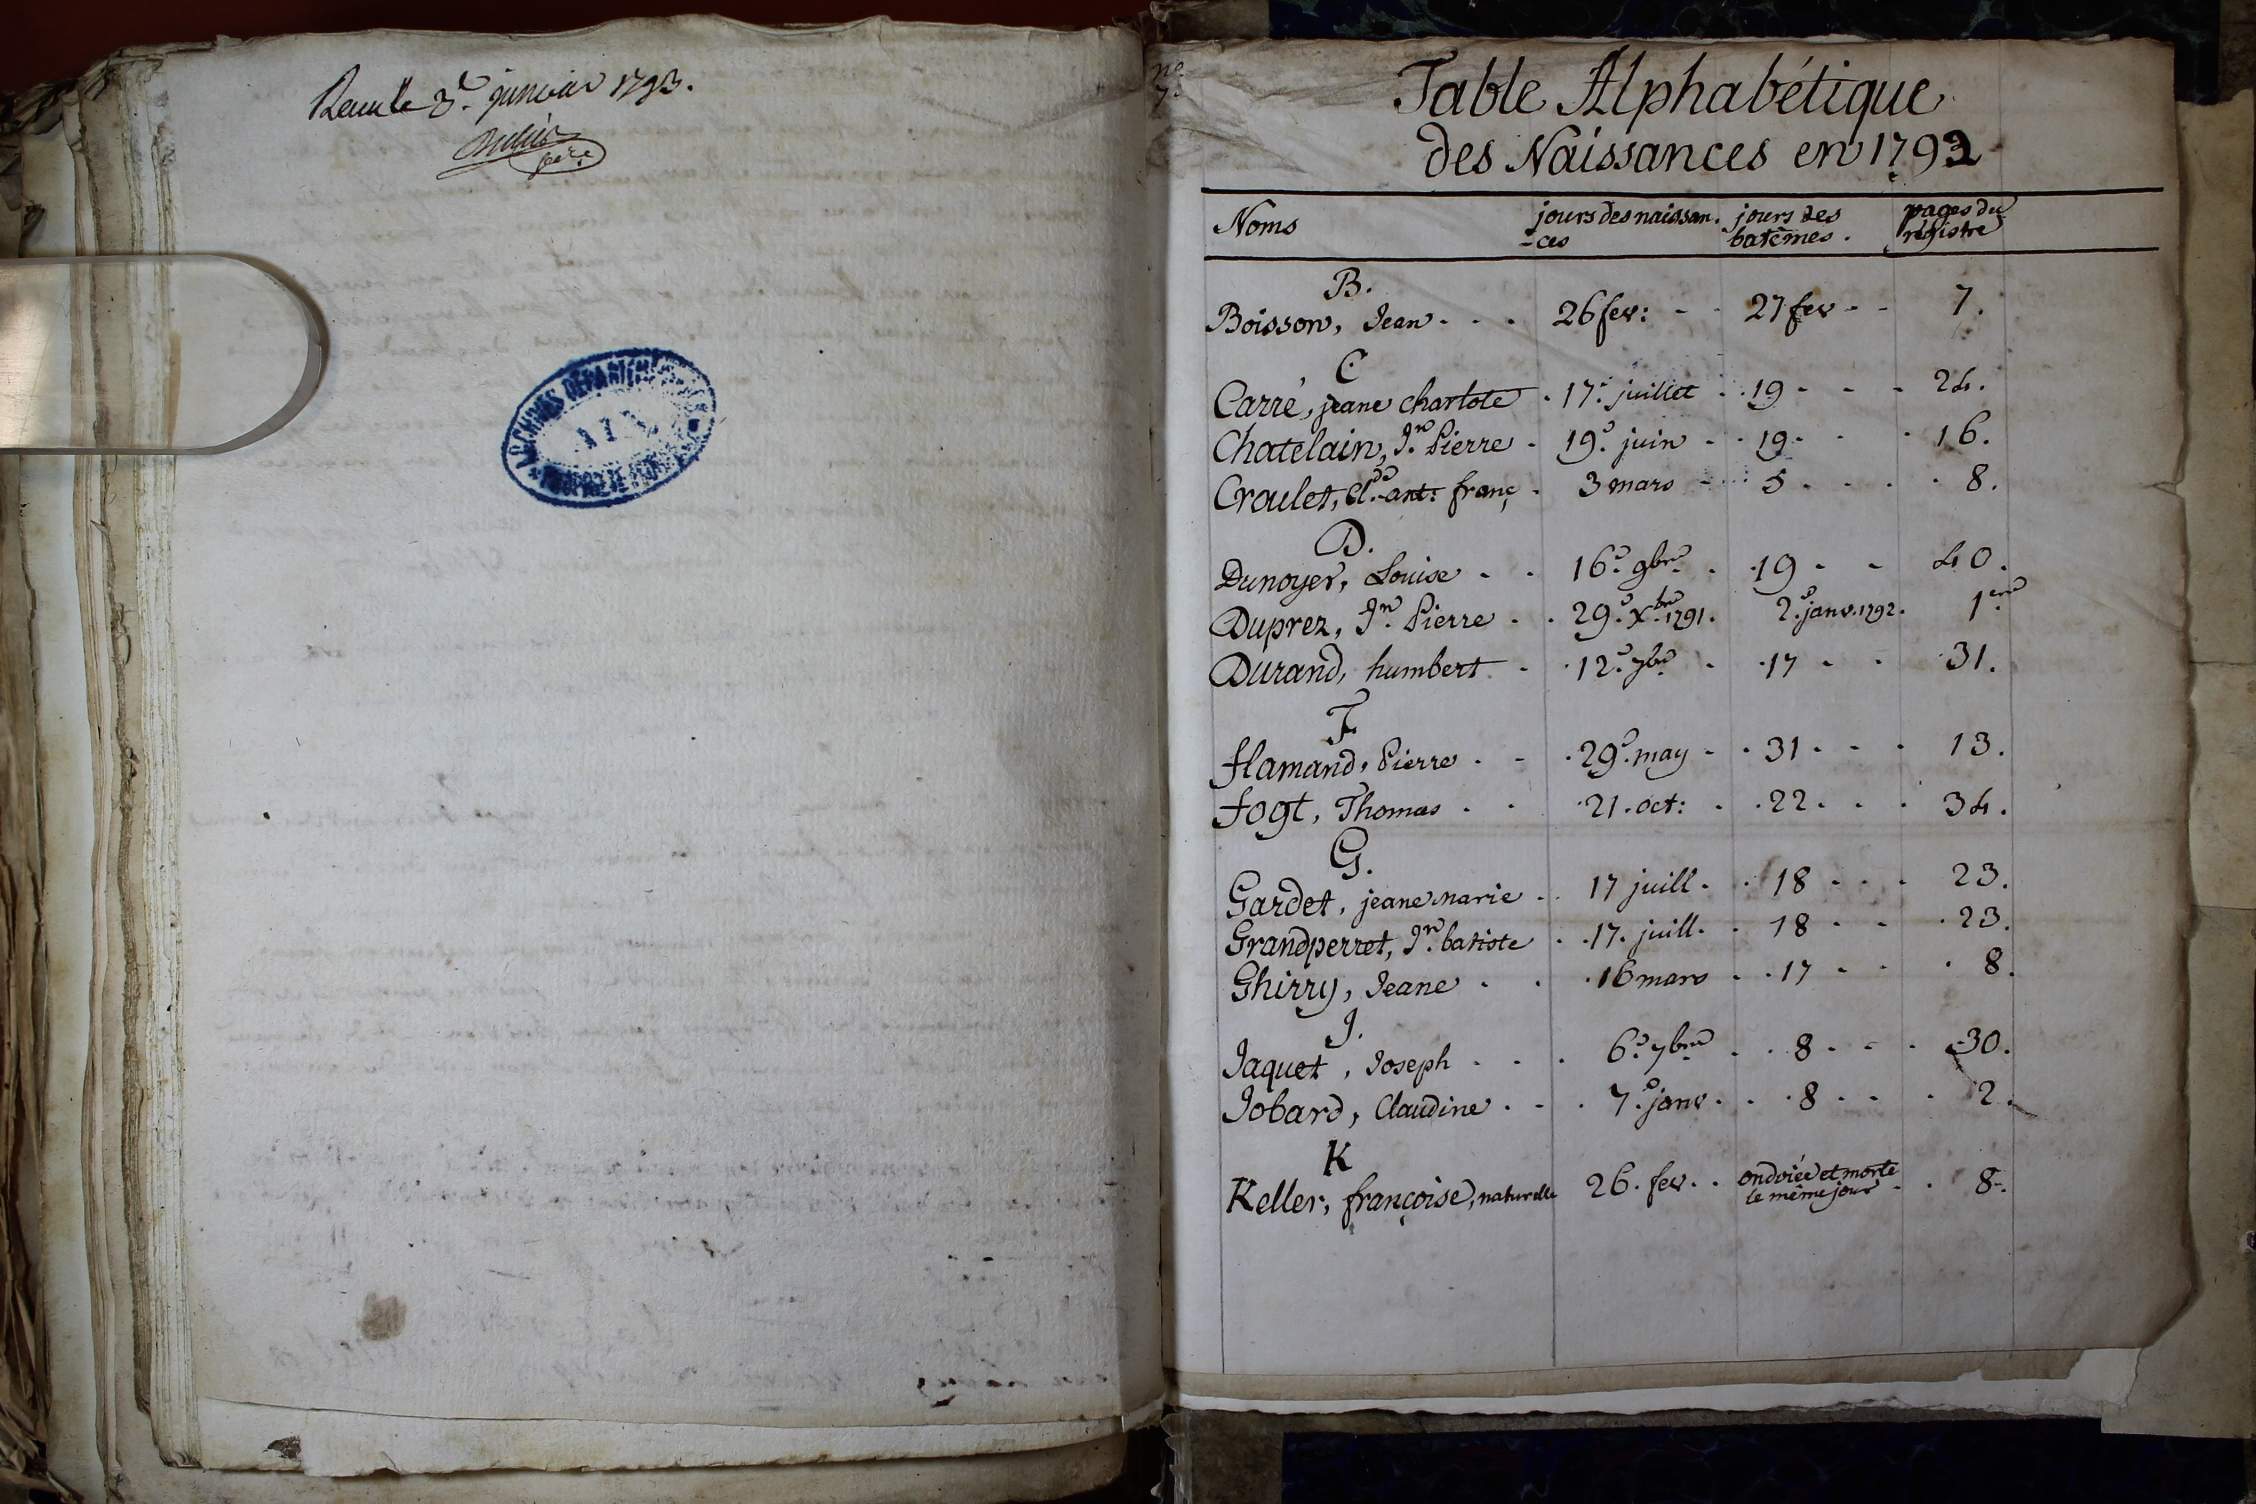 Recu le 3e. janvier 1793.
père
ARCHIVES DÉPARTEM
AIN
PROPRIÉTÉ PUBLIQUE
Table Alphabétique
des Naissances en 1792
Noms jours des naissan- jours des pages du
-ces batêmes. régistre
B.
Boisson, Jean - - - 26 fev: - - 27 fev - - 7.
C
Carré, jeane charlote - 17e. juillet - 19 - - - 24.
Chatelain, Jn. Pierre - 19e. juin - - 19 - - - 16.
Croulet, Cl.de ant: franç - 3 mars - - 5 - - - 8.
D.
Dunoyer, Louise - - 16e. 9bre. - 19 - - 40.
Duprez, Jn. Pierre - - 29e. Xbre. 1791. 2e. janv. 1792. 1ere
Durand, humbert - 12e. 7bre - 17 - - 31.
F.
flamand, Pierre - - 29e. may - - 31 - - - 13.
fogt, Thomas - - 21. oct: - 22 - - - 34.
G.
Gardet, jeane marie - - 17 juill. - 18 - - - 23.
Grandperret, Jn. batiste - 17. juill. - 18 - - 23.
Ghirry, Jeane - - 16 mars - - 17 - - 8.
J.
Jaquet, Joseph - - - 6e. 7bre - - 8 - - - 30.
Jobard, Claudine - - - 7e. janv. - - 8 - - - 2.
K
Keller, françoise, naturelle 26. fev. - ondoiée et morte
le même jour - - 8.